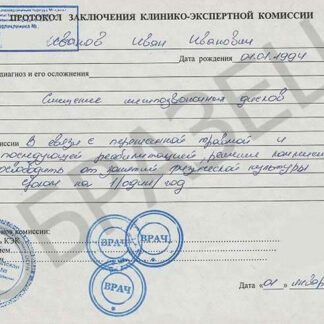 ПРОТОКОЛ ЗАКЛЮЧЕНИЯ КЛИНИКО-ЭКСПЕРТНОЙ КОМИССИИ
Иванов Иван Иванович
Дата рождения 01.01.1994
диагноз и его осложнения
Смещение межпозвонковых дисков
иссии В связи с перенесенной травмой и
последующей реабилитацией, решение комиссии
освободить от занятий физической культуры
сроком на 1/один/ год
комиссии:
ь КЭК
ВРАЧ
ВРАЧ
ВРАЧ
Дата «01»
ОБРАЗЕЦ